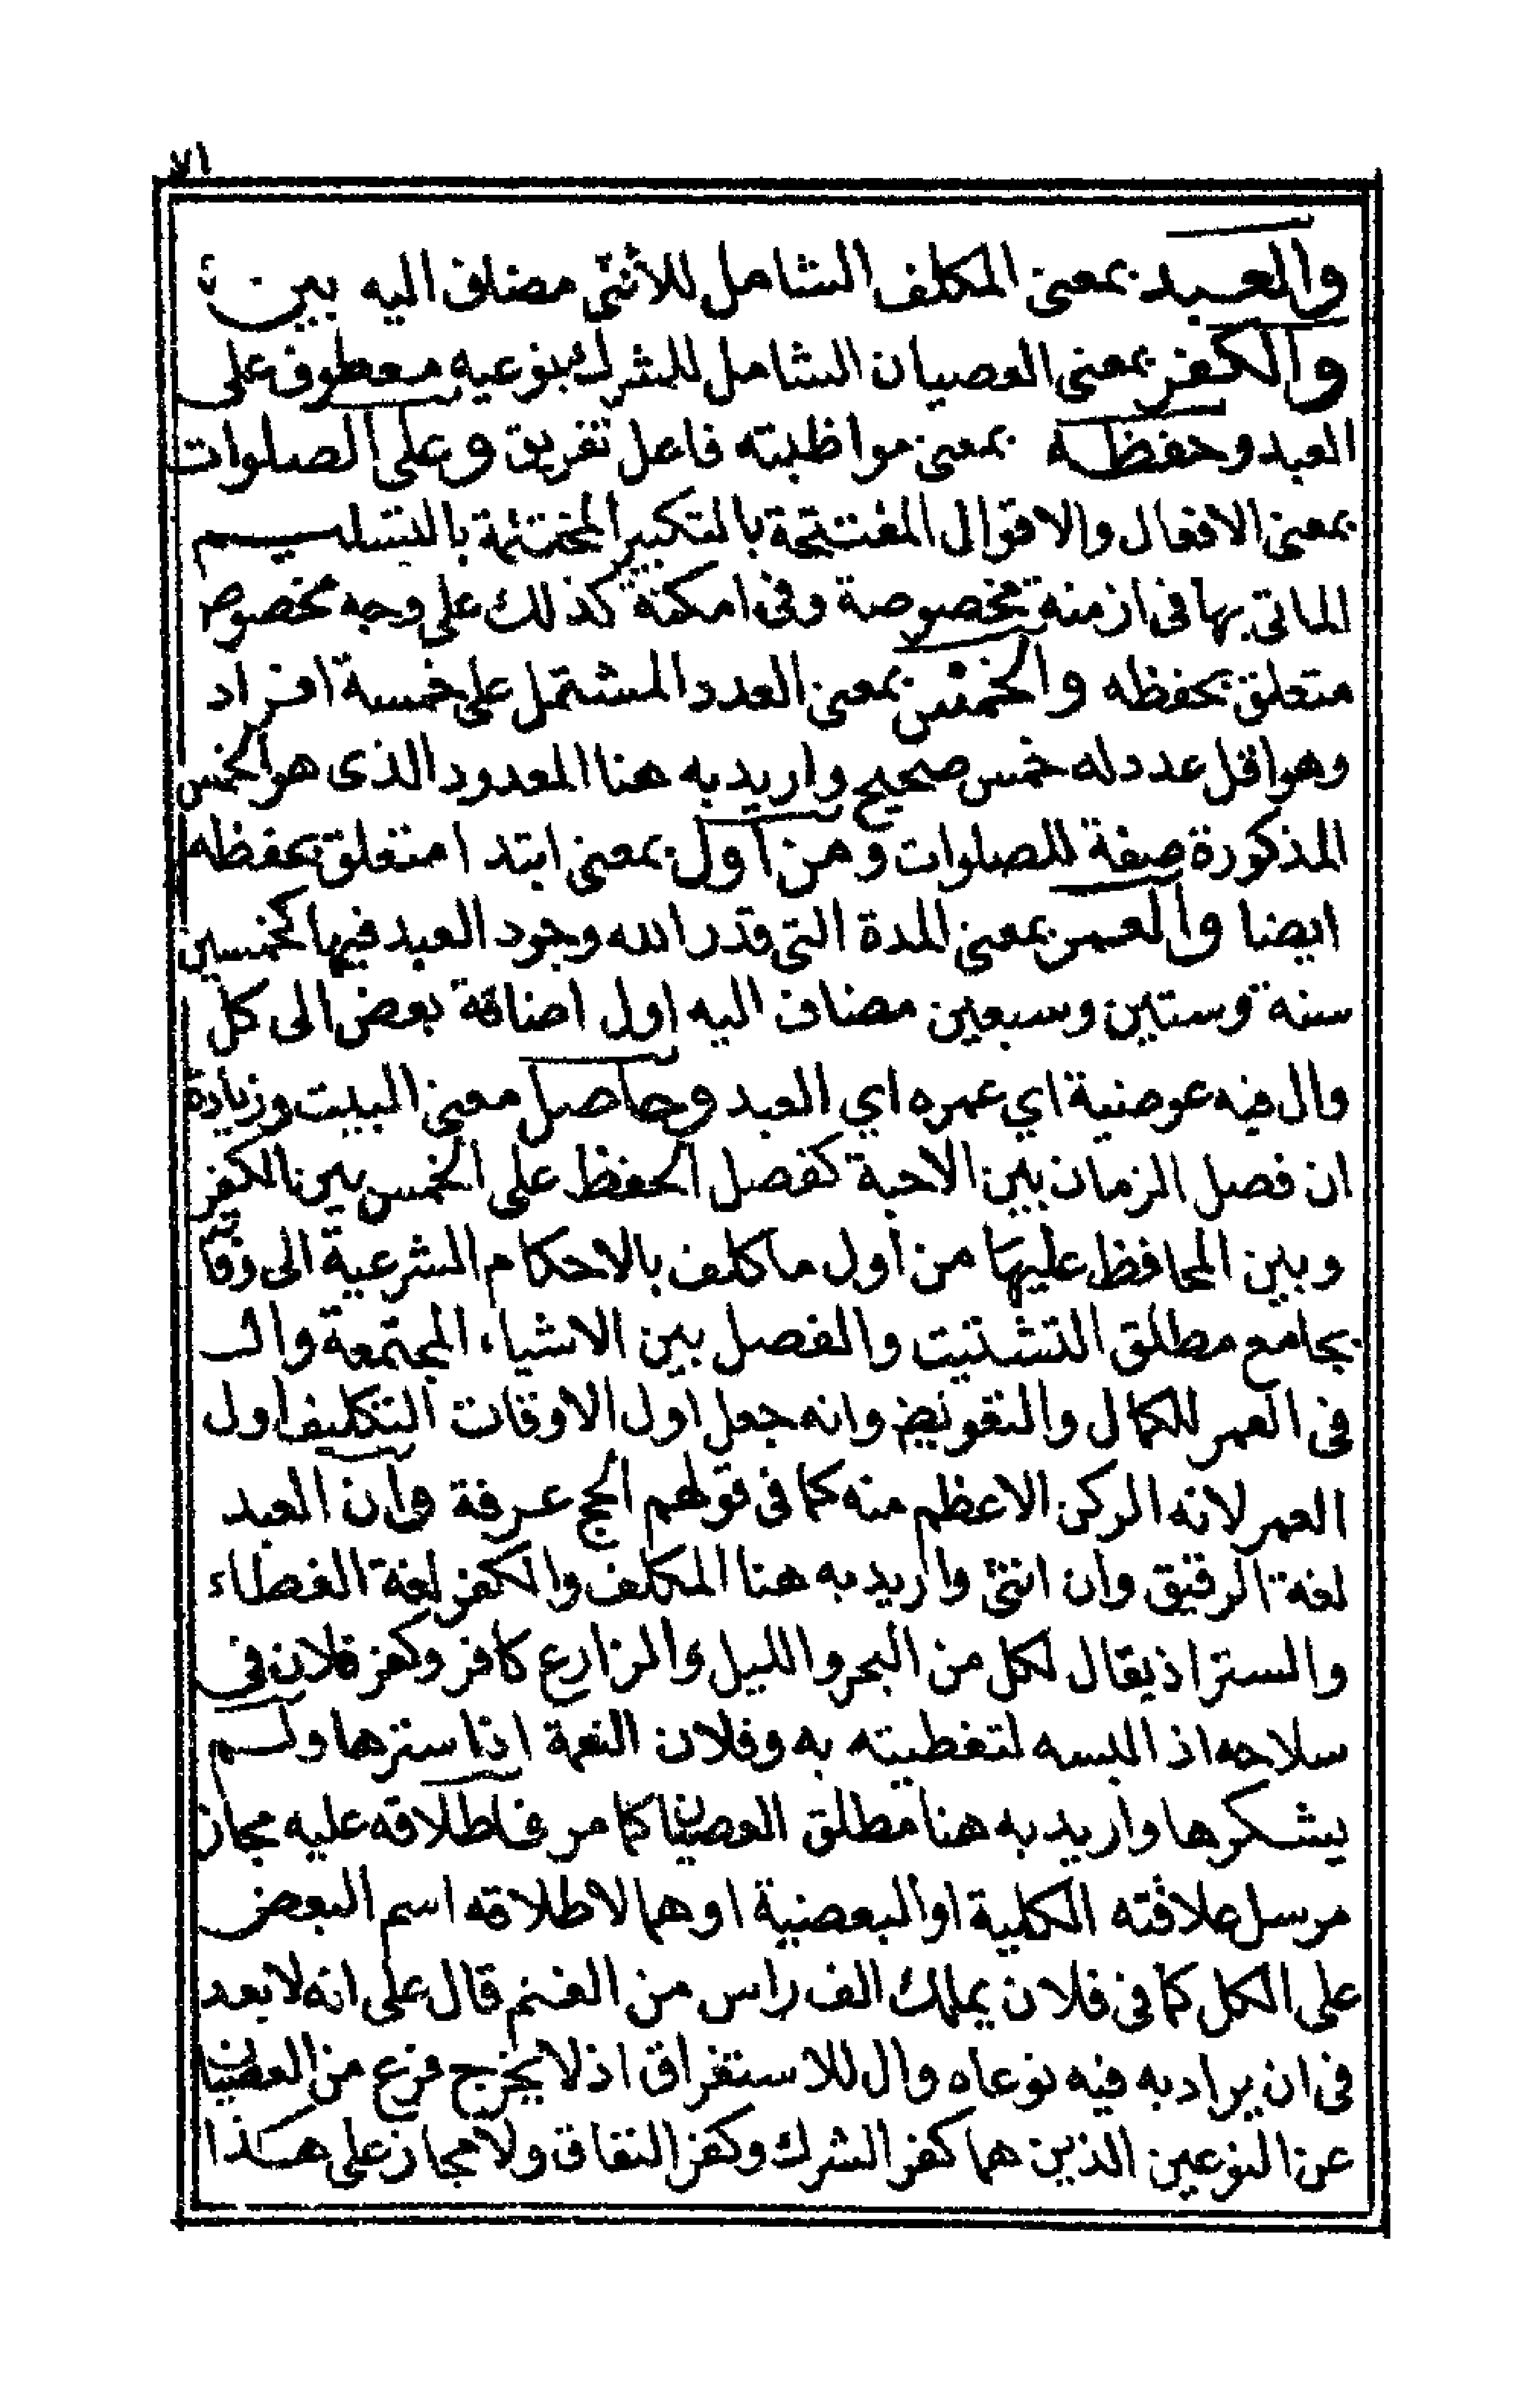 ٧١
والعبد بمعنى المكلف الشامل للأنثى مضاف اليه بين
والكفر بمعنى العصيان الشامل للشرك بنوعيه معطوف على
العبد وحفظه بمعنى مواظبته فاعل تفريق وعلى الصلوات
بمعنى الافعال والاقوال المفتتحة بالتكبير المختتمة بالتسليم
الماتى بها فى ازمنة مخصوصة وفى امكنة كذلك على وجه مخصوص
متعلق بحفظه والخمس بمعنى العدد المشتمل على خمسة افراد
وهو اقل عدد له خمس صحيح واريد به هنا المعدود الذى هو الخمس
المذكورة صفة للصلوات ومن اول بمعنى ابتدا متعلق بحفظه
ايضا والعمر بمعنى المدة التى قدر الله وجود العبد فيها كخمسين
سنة وستين وسبعين مضاف اليه اول اضافة بعض الى كل
وال فيه عوضية اي عمره اي العبد وحاصل معنى البيت وزيادة
ان فصل الزمان بين الاحبة كفصل الحفظ على الخمس بين الكفر
وبين المحافظ عليها من اول ما كلف بالاحكام الشرعية الى وفاته
بجامع مطلق التشتيت والفصل بين الاشياء المجتمعة وال
فى العمر للكمال والتعويض وانه جعل اول الاوقات التكليف اول
العمر لانه الركن الاعظم منه كما فى قولهم الحج عرفة وان العبد
لغة الرقيق وان انثى واريد به هنا المكلف والكفر لغة الغطاء
والستر اذ يقال لكل من البحر والليل والزارع كافر وكفر فلان فى
سلاحه اذ البسه لتغطيته به وفلان النعمة اذا سترها ولم
يشكرها واريد به هنا مطلق العصيان كما مر فاطلاقه عليه مجاز
مرسل علاقته الكلية او البعضية او هما لاطلاقه اسم البعض
على الكل كما فى فلان يملك الف راس من الغنم قال على انه لا بعد
فى ان يراد به فيه نوعاه وال للاستغراق اذ لا يخرج فرع من العصيان
عن النوعين الذين هما كفر الشرك وكفر النفاق ولا مجاز على هذا